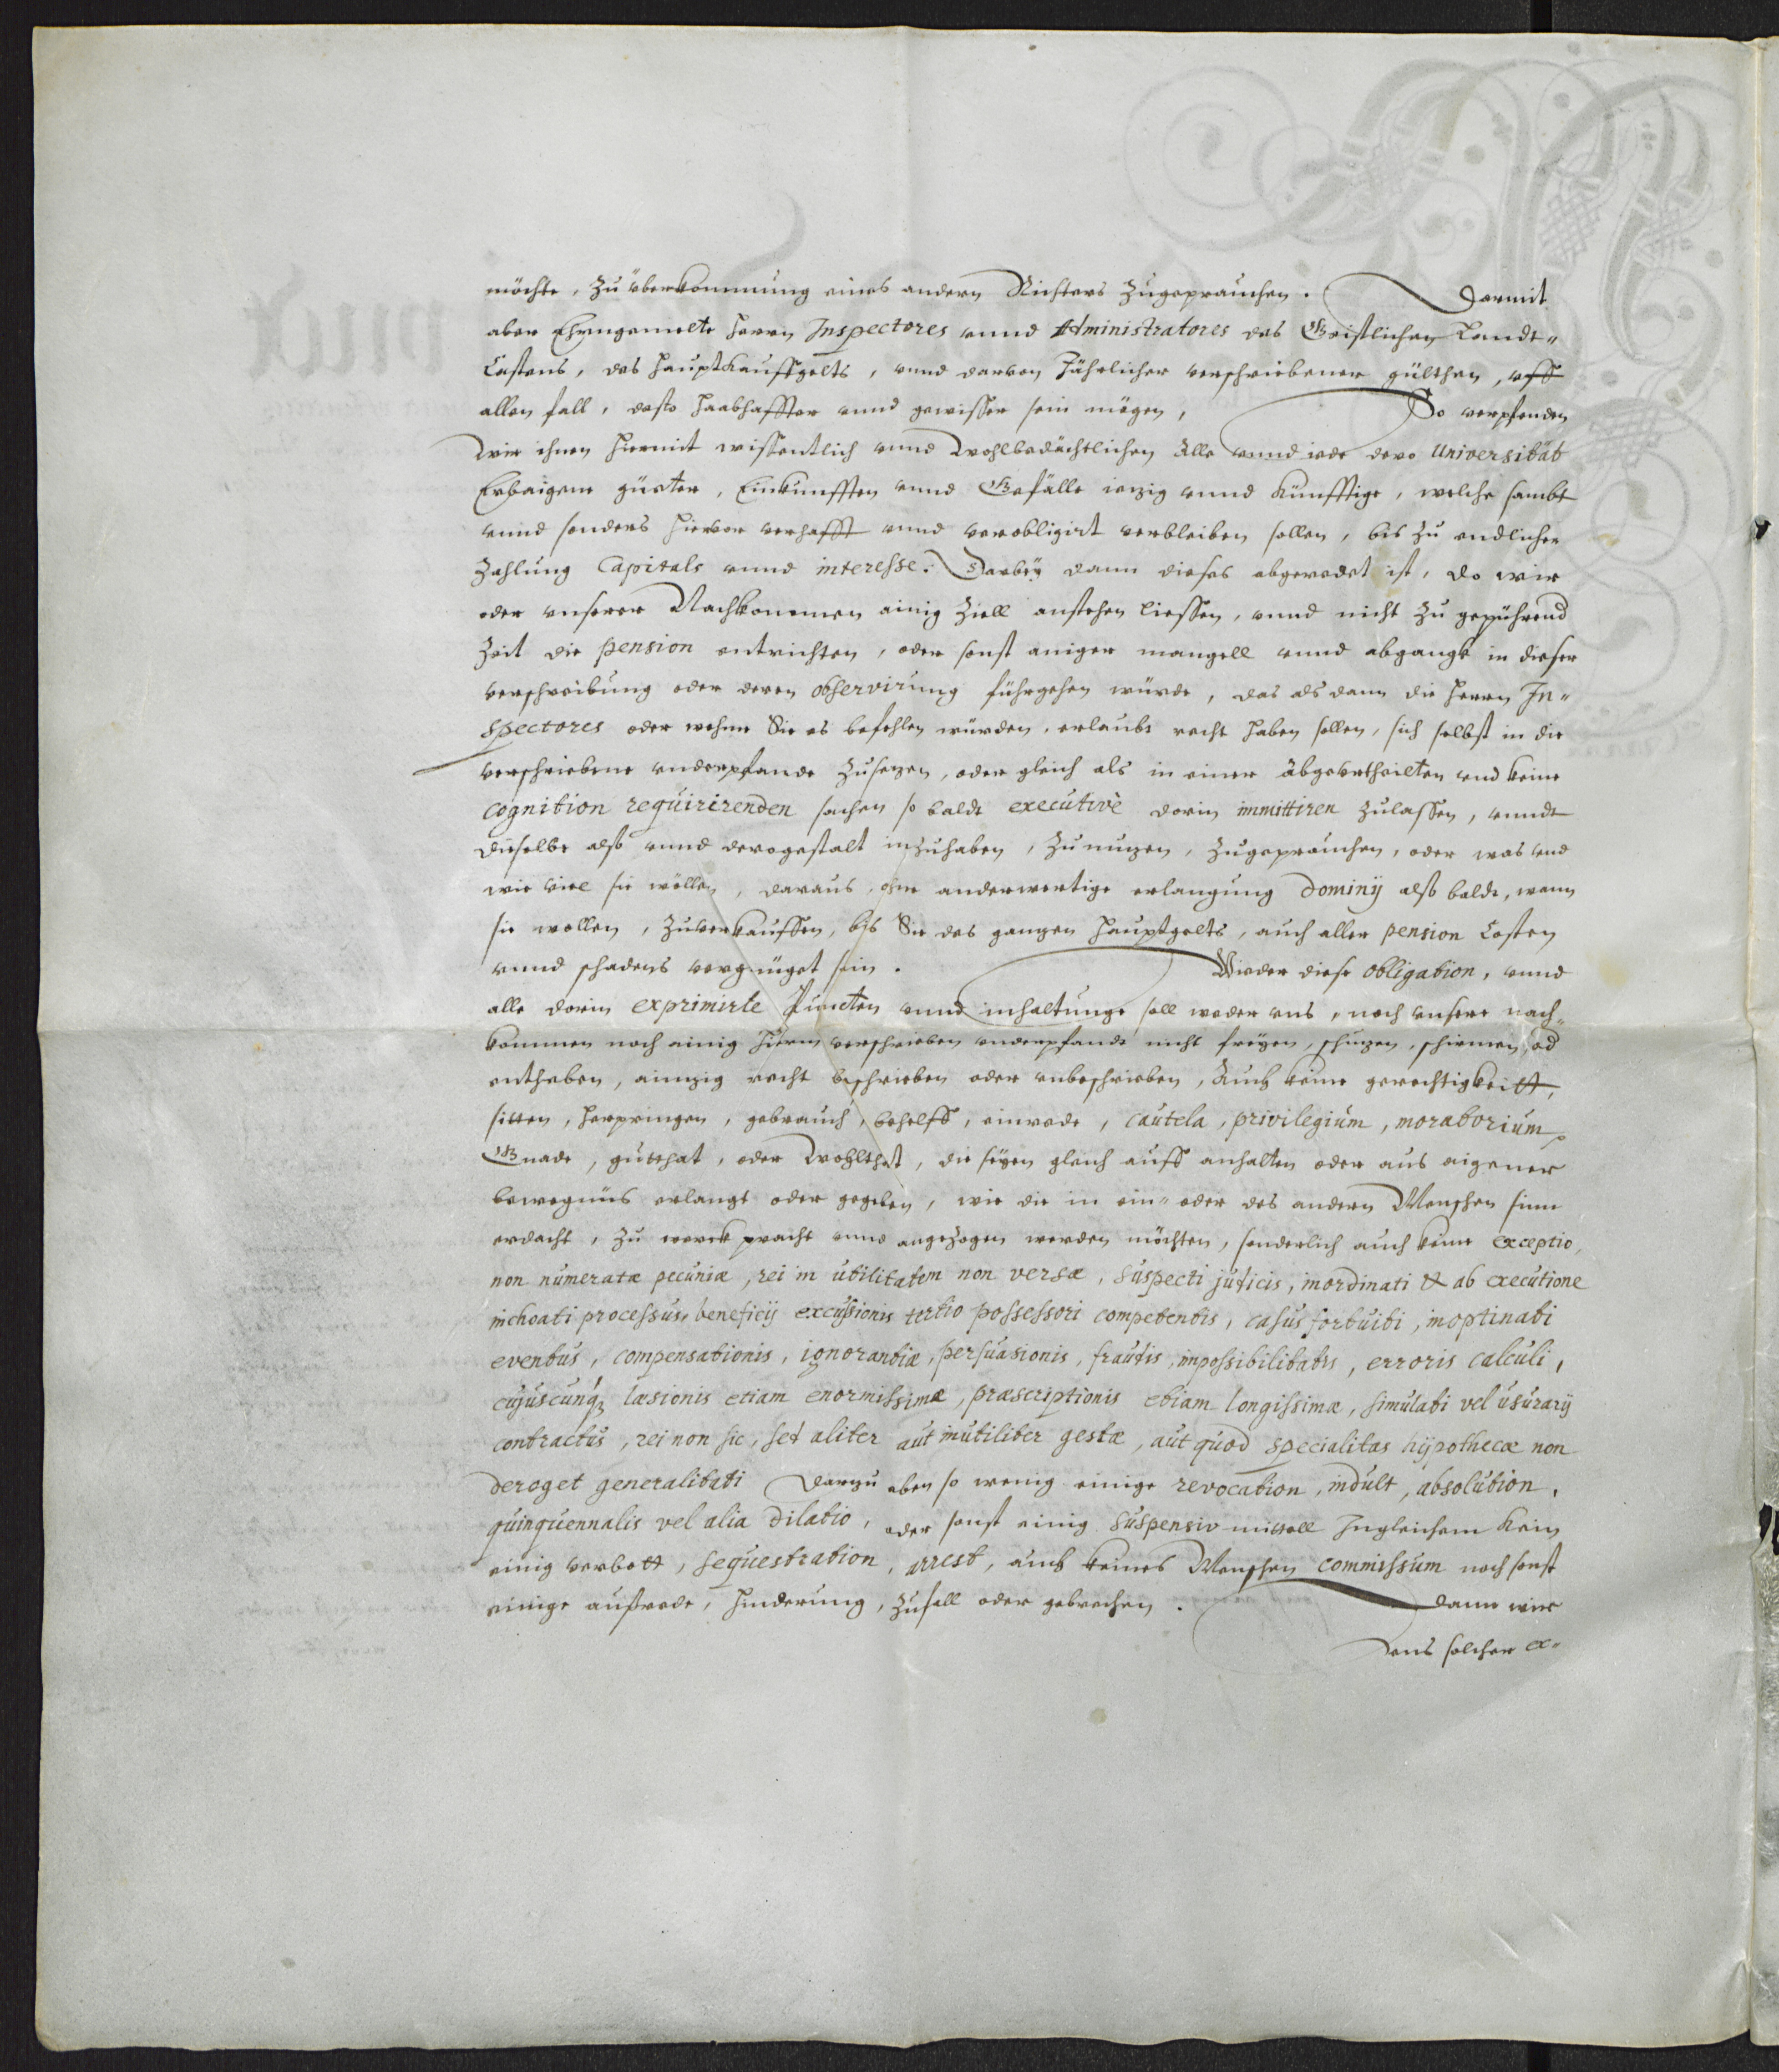 möchte, Zu überkommung eines andern Richters Zugeprauchen. Darmit
aber Ehrngemelte Herrn Inspectores vnnd Administratores des Geistlichen Landt-
Castens, des Hauptkauffgelts, vnnd darvon Jährlicher verschriebener gülthen, vff
allen fall, desto haabhaffter vnnd gewisser sein mögen, So verpfenden
Wir ihnen hiermit wissentlich vnnd Wohlbedächtlichen Alle vnnd iede dero Universität
Erbaigene güeter, Einkunfften vnnd Gefälle ieczig vnnd künfftige, welche sambt
vnnd sonders hiervor verhafft vnnd verobligirt verbleiben sollen, bis zu endlicher
Zahlung Capitals vnnd interesse. Darbey dann dieses abgeredet ist, do wir
oder vnserer Nachkommen ainig Ziell anstehen liessen, vnnd nicht zu gepührend
Zeit die pension entrichten, oder sonst ainiger mangell vnnd abgangk in dieser
verschreibung oder deren observirung fürgehen würde, das als dann die Herrn In-
spectores oder wehme Sie es befehlen würden, erlaubt recht haben sollen, sich selbst in die
verschriebene vnderpfande Zusezen, oder gleich als in einer Abgeurtheilten vnd keine
cognition requirirenden sachen so baldt executivè darin immittiren Zulassen, vnndt
dieselbe alß vnnd derogestalt inzuhaben, Zunuzen, Zugeprauchen, oder was vnd
wie viel sie wöllen, daraus, ohne anderwertige erlangung Dominij alß baldt, wenn
sie wollen, Zuverkauffen, bis Sie des ganzen Hauptgelts, auch aller pension Costen
vnnd schadens vergnüget sein. Wieder diese obligation, vnnd
alle darin exprimirte Puncten vnnd inhaltunge soll weder vns, noch vnsere nach-
kommen noch ainig hierin verschrieben vnderpfandt nicht freyen, schüzen, schirmen, od
entheben, ainzig recht beschrieben oder vnbeschrieben, Auch keine gerechtigkeitt,
sitten, herpringen, gebrauch, behelff, einrede, cautela, privilegium, moratorium,
Gnade, gutthat, oder Wohlthat, die seyen gleich auff anhalten oder aus aigener
bewegnüs erlangt oder gegeben, wie die in ein- oder des andern Menschen sinn
erdacht, zu werck pracht vnnd angezogen werden möchten, sonderlich auch keine exceptio,
non numeratæ pecuniæ, rei in utilitatem non versæ, suspecti judicis, inordinati & ab executione
inchoati processus, beneficij excussionis tertio possessori competentis, casus fortuiti, inoptinati
eventus, compensationis, ignorantiæ, persuasionis, fraudis, impossibilitatis, erroris calculi,
cujuscunq3 læsionis etiam enormissimæ, præscriptionis etiam longissimæ, simulati vel usurarij
contractus, rei non sic, sed aliter aut inutiliter gestæ, aut quod specialitas hypothecæ non
deroget generalitati Darzu eben so wenig einige revocation, indult, absolution,
quinquennalis vel alia dilatio, oder sonst einig suspensiv mittell Ingleichem kein
einig verbott, sequestration, arrest, auch keines Menschen commissum noch sonst
einige außrede, hinderung, Zufall oder gebrechen. Dann wir
vns solcher ex-